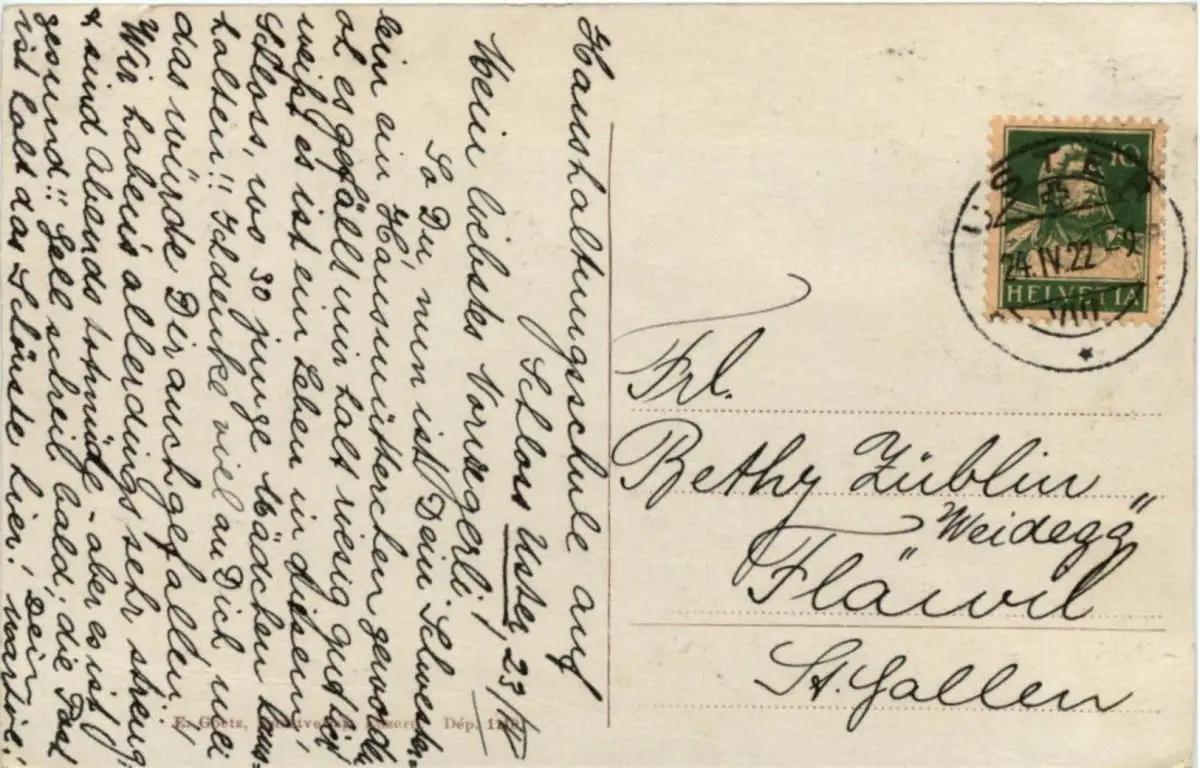 Haushaltungsschule auf
Schloss Uster, 23/IV
Mein liebstes Vorzegerli!
So Du, nun ist Dein Schwester-
lein ein Hausmütterchen geworden
ob es gefällt mir halt riesig gut hier
weißt es ist ein Leben in diesem
Schloss, wo 30 junge Mädchen haus-
halten!! Ich denke viel an Dich weil
das würde Dir auch gefallen!
Wir haben's allerdings sehr streng
& sind Abends totmüde - aber es ist
gesund!! Gell schreib bald; die Post
ist halt das Schönste hier! Dein
E. Goetz, Luzern Dép. 11
10
HELVETIA
USTER
24.IV.22
VIII
Frl.
Bethy Züblin
"Weidegg"
Flawil
St. Gallen